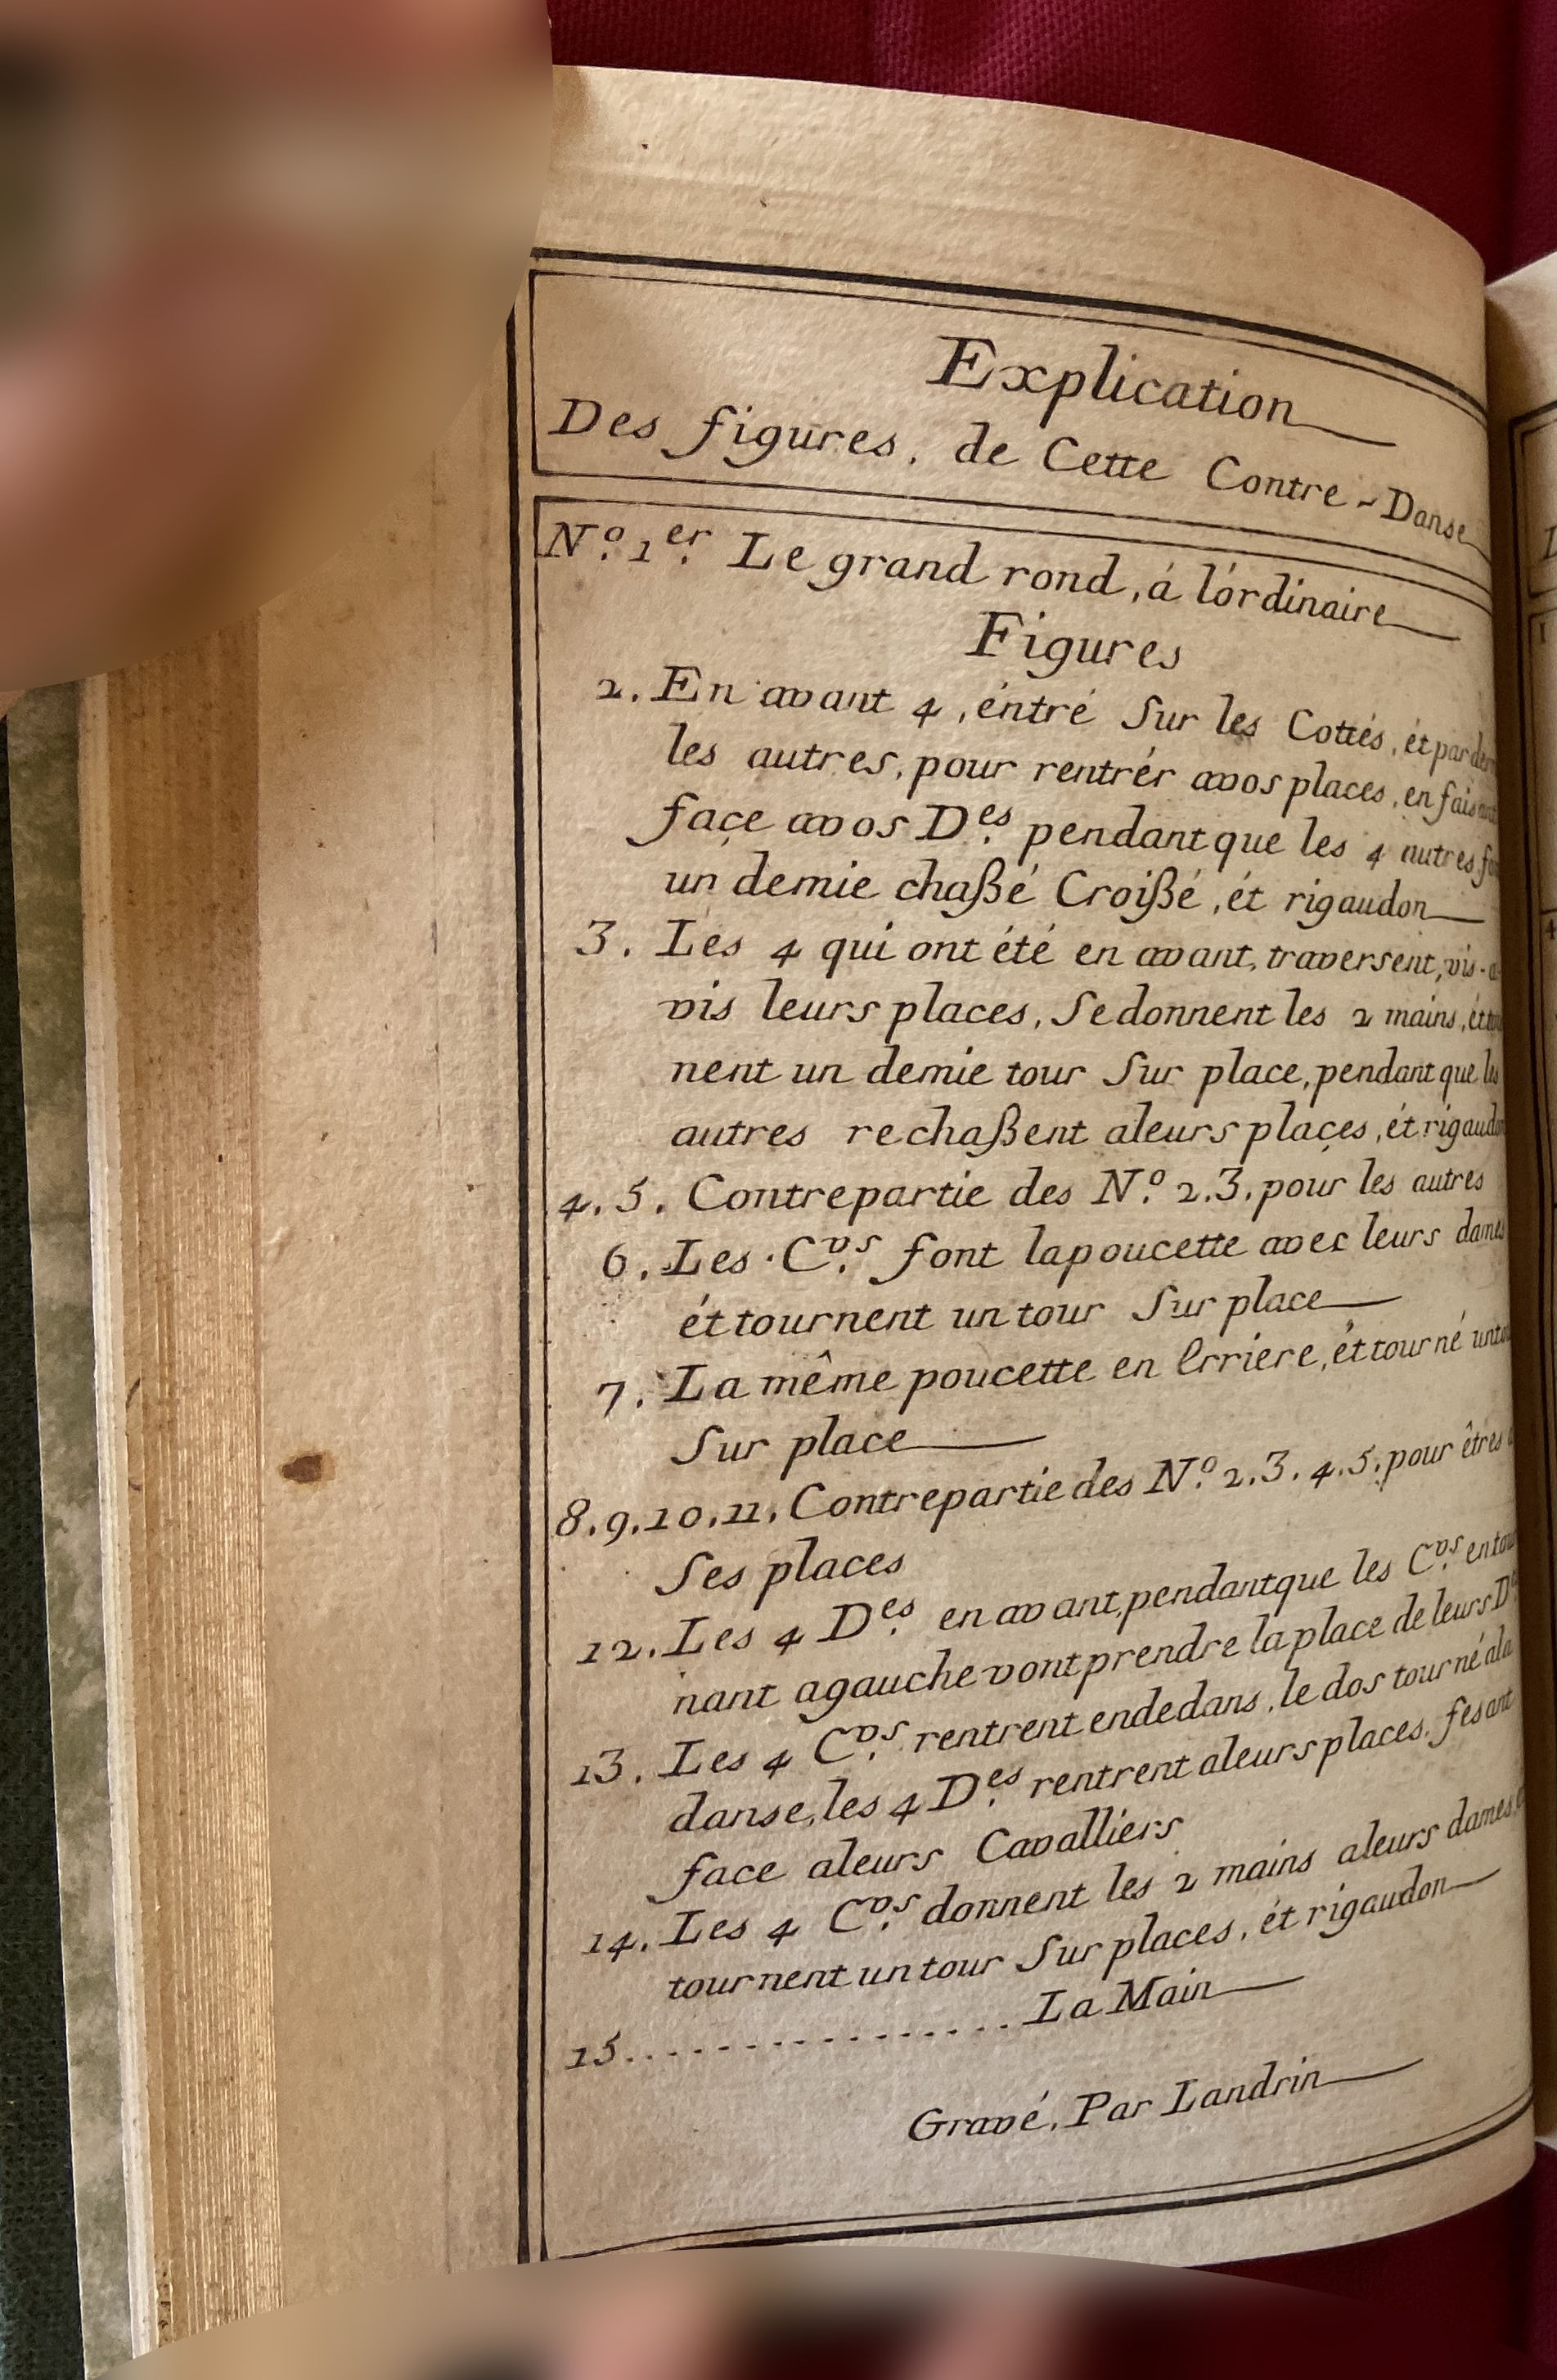 Explication
Des figures, de Cette Contre-Danse
N.º 1.er Le grand rond, á l'ordinaire
Figures
2. En avant 4, éntré Sur les Cottés, ét par
les autres, pour rentrér avos places, en faisant
façe avos D.es pendant que les 4 autres
un demie chaßé Croißé, ét rigaudon
3. Les 4 qui ont été en avant, traversent, vis-a-
vis leurs places, Se donnent les 2 mains, ét
nent un demie tour Sur place, pendant que les
autres rechaßent aleurs plaçes, ét rigaudon
4. 5. Contrepartie des N.º 2. 3. pour les autres
6. Les C.vs font lapoucette avec leurs dames
ét tournent un tour Sur place
7. La même poucette en Erriere, ét tourné
Sur place
8. 9. 10. 11. Contrepartie des N.º 2. 3. 4. 5. pour êtres
Ses places
12. Les 4 D.es en avant, pendantque les C.vs entour
nant agauche vont prendre la place de leurs D.es
13. Les 4 C.vs rentrent endedans, le dos tourné ala
danse, les 4 D.es rentrent aleurs places, fesant
face aleurs Cavalliers
14. Les 4 C.vs donnent les 2 mains aleurs dames
tournent un tour Sur places, ét rigaudon
15. . . . . . . . . . . . . . . . . La Main
Gravé, Par Landrin